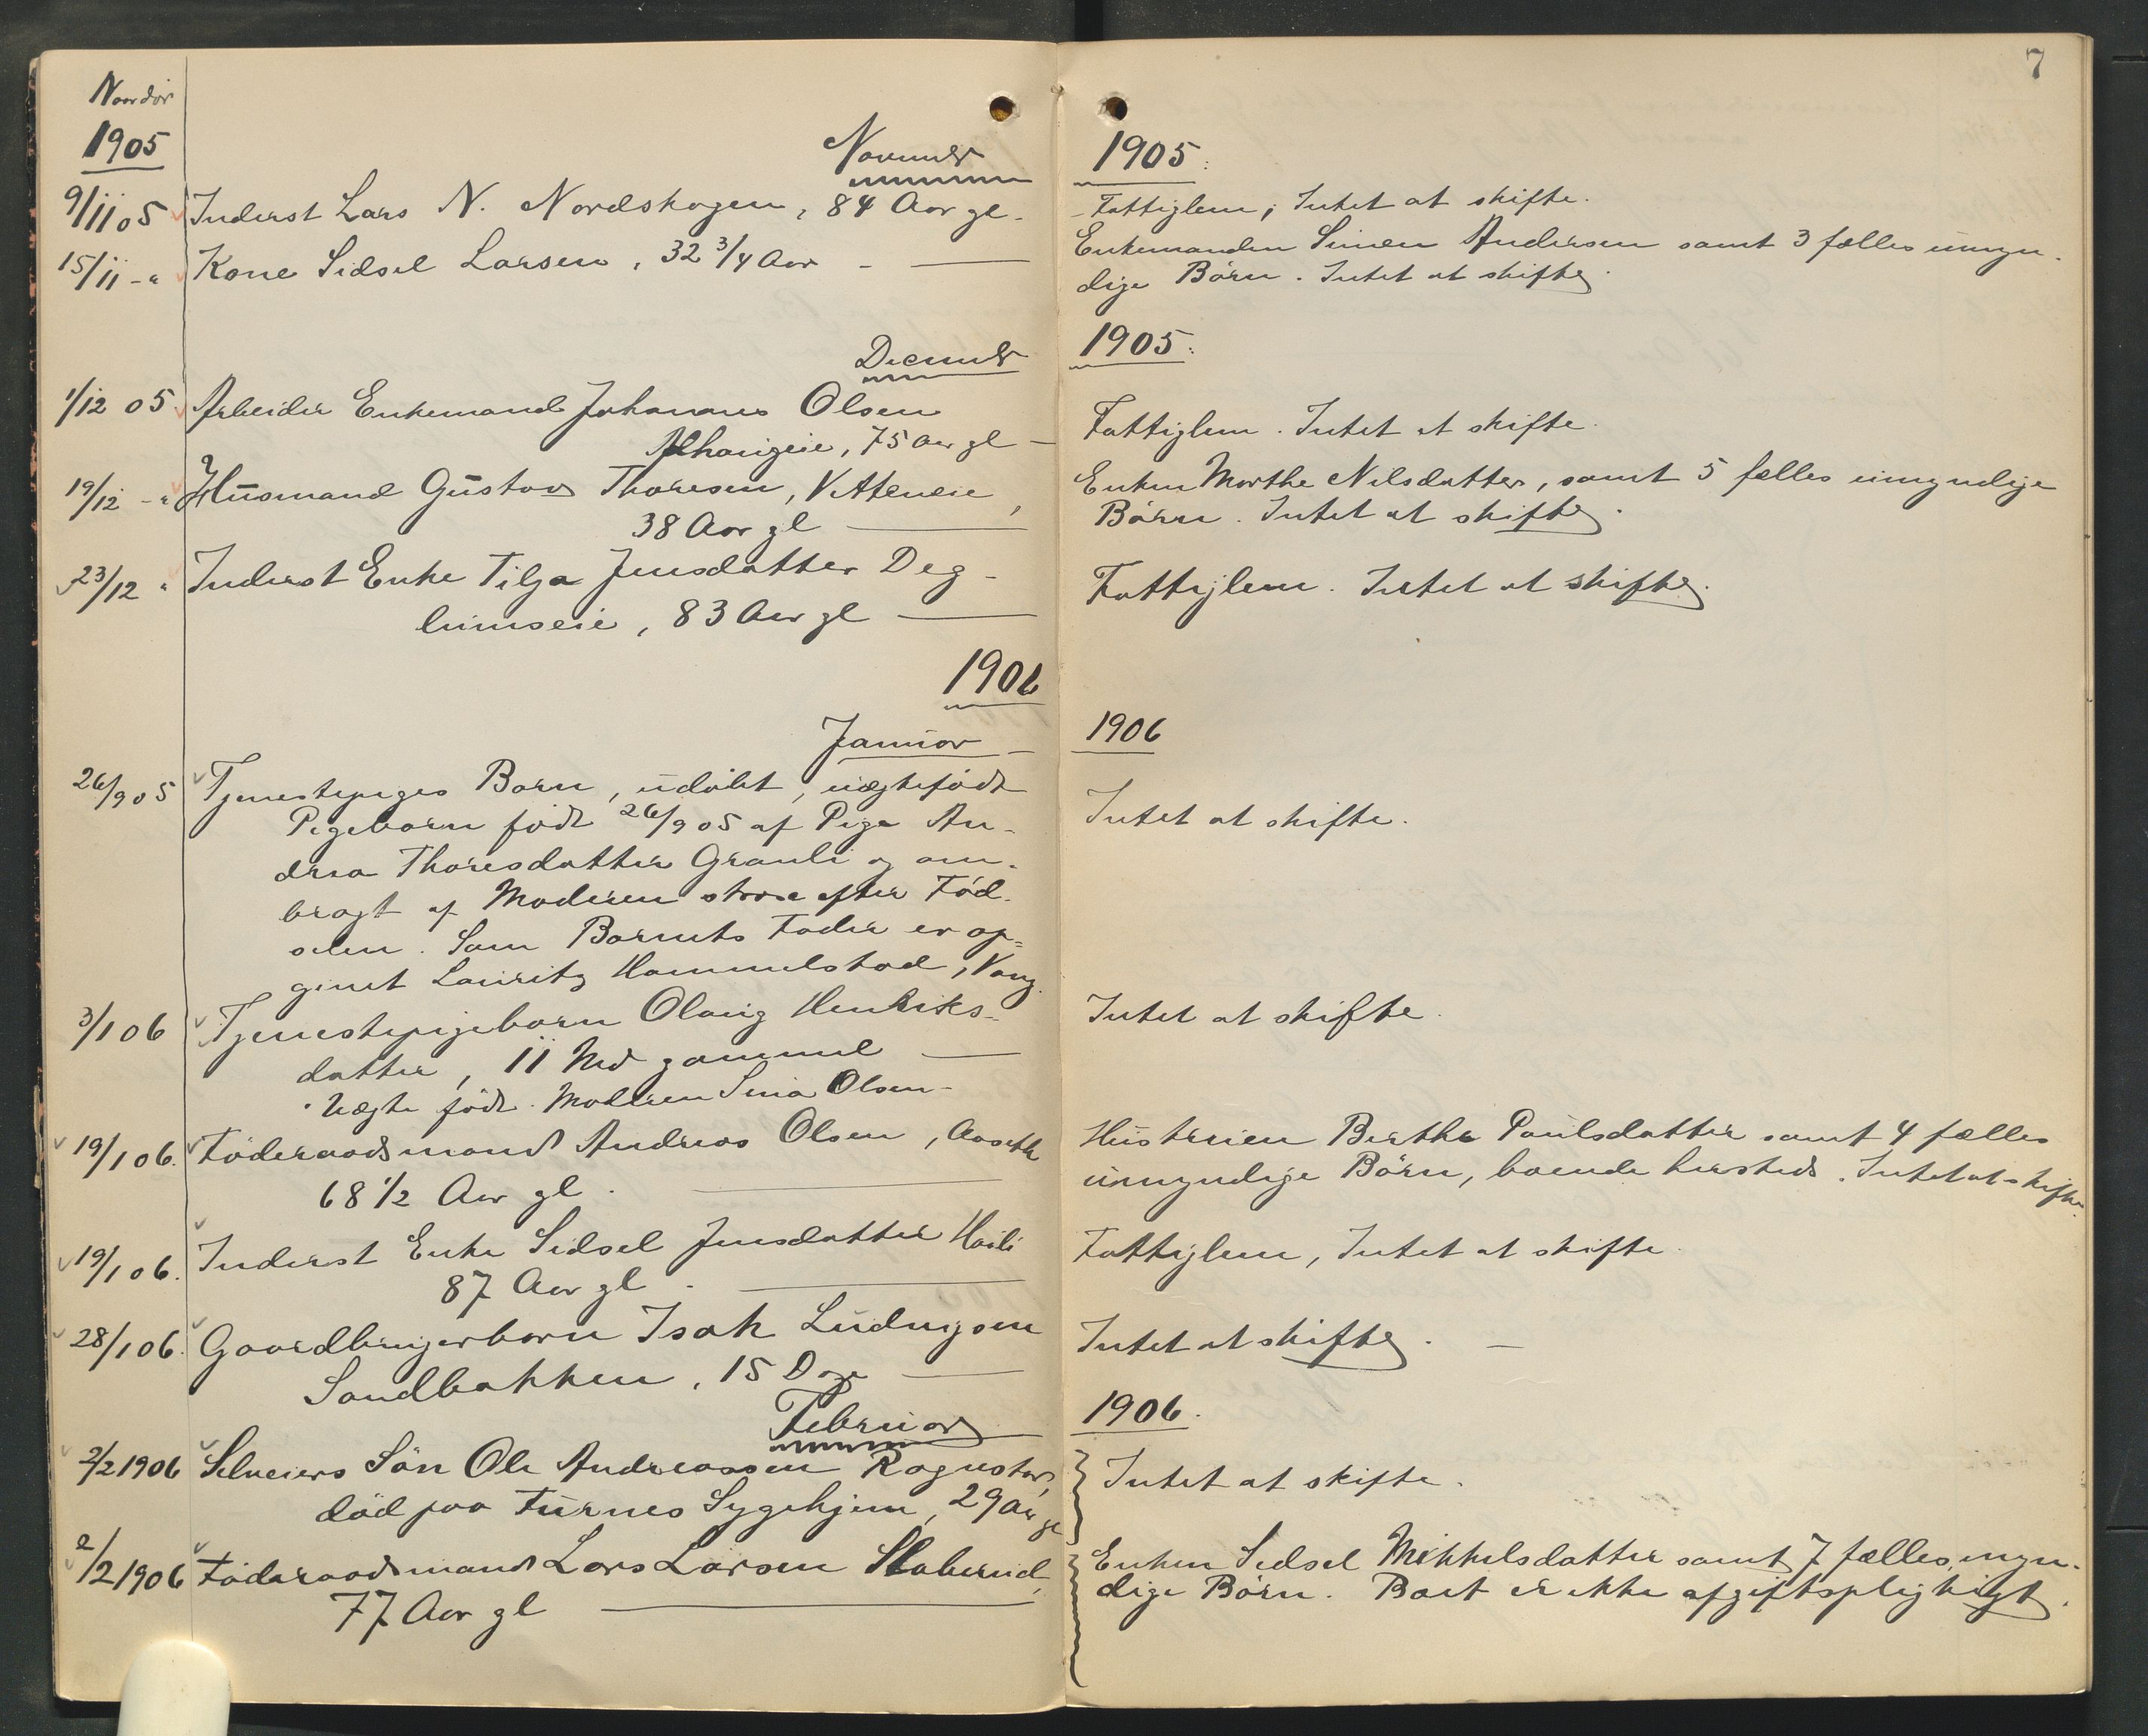 7
Naardør
1905
Novembr
1905:
9/11 05 Inderst Lars N. Nordskogen, 84 Aar gl.
- Fattiglem; Intet at skifte.
15/11 - " Kone Sidsel Larsen, 32 3/4 Aar -
Enkemanden Simen Andersen samt 3 fælles umyn-
dige Börn. Intet at skifte.
Decembr
1905:
1/12 05 Arbeider Enkemand Johannes Olsen
, 75 Aar gl -
Fattiglem. Intet at skifte.
19/12 - " Husmand Gustav Thoresen, Vitteneie,
38 Aar gl
Enken Marthe Nilsdatter, samt 5 fælles umyndige
Börn. Intet at skifte.
23/12 " Inderst Enke Tilja Jensdatter Deg-
lumseie, 83 Aar gl
Fattiglem. Intet at skifte.
1906
Januar
1906
26/9 05 Tjenestepiges Barn, udöbt, uægtefödt
Pigebarn födt 26/9 05 af Pige An-
drea Thoresdatter Granli og om-
bragt af Moderen strax efter Föd-
selen. Som Barnets Fader er op-
givet Lauritz Hommelstad, Vang.
Intet at skifte.
3/1 06 Tjenestepigebarn Olaug Henriks-
datter, 11 Md gammel
Uægte födt. Moderen Sina Olsen -
Intet at skifte.
19/1 06. Föderaadsmand Andreas Olsen, Aaseth
68 1/2 Aar gl.
Hustruen Berthe Paulsdatter samt 4 fælles
umyndige Börn, boende hersteds. Intet at skifte.
19/1 06. Inderst Enke Sidsel Jensdatter Haili
87 Aar gl.
Fattiglem, Intet at skifte.
28/1 06. Gaardbrugerbarn Isak Ludvigsen
Sandbakken, 15 Dage
Intet at skifte. -
Februar
1906.
2/2 1906 Selveiers Sön Ole Andreassen Rognstad,
död paa Furnes Sygehjem, 29 Aar gl
Intet at skifte.
2/2 1906 Föderaadsmand Lars Larsen Staberud,
77 Aar gl
Enken Sidsel Mikkelsdatter samt 7 fælles myn-
dige Börn. Boet er ikke afgiftspligtigt.